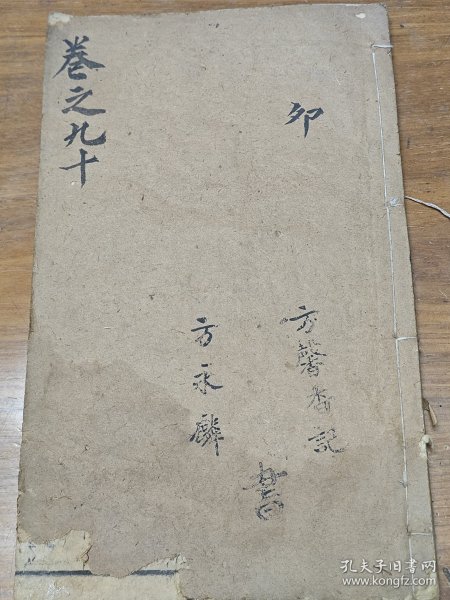 卯
方馨香記
書
方永麟
卷之九十
孔夫子旧书网
www.kongfz.com